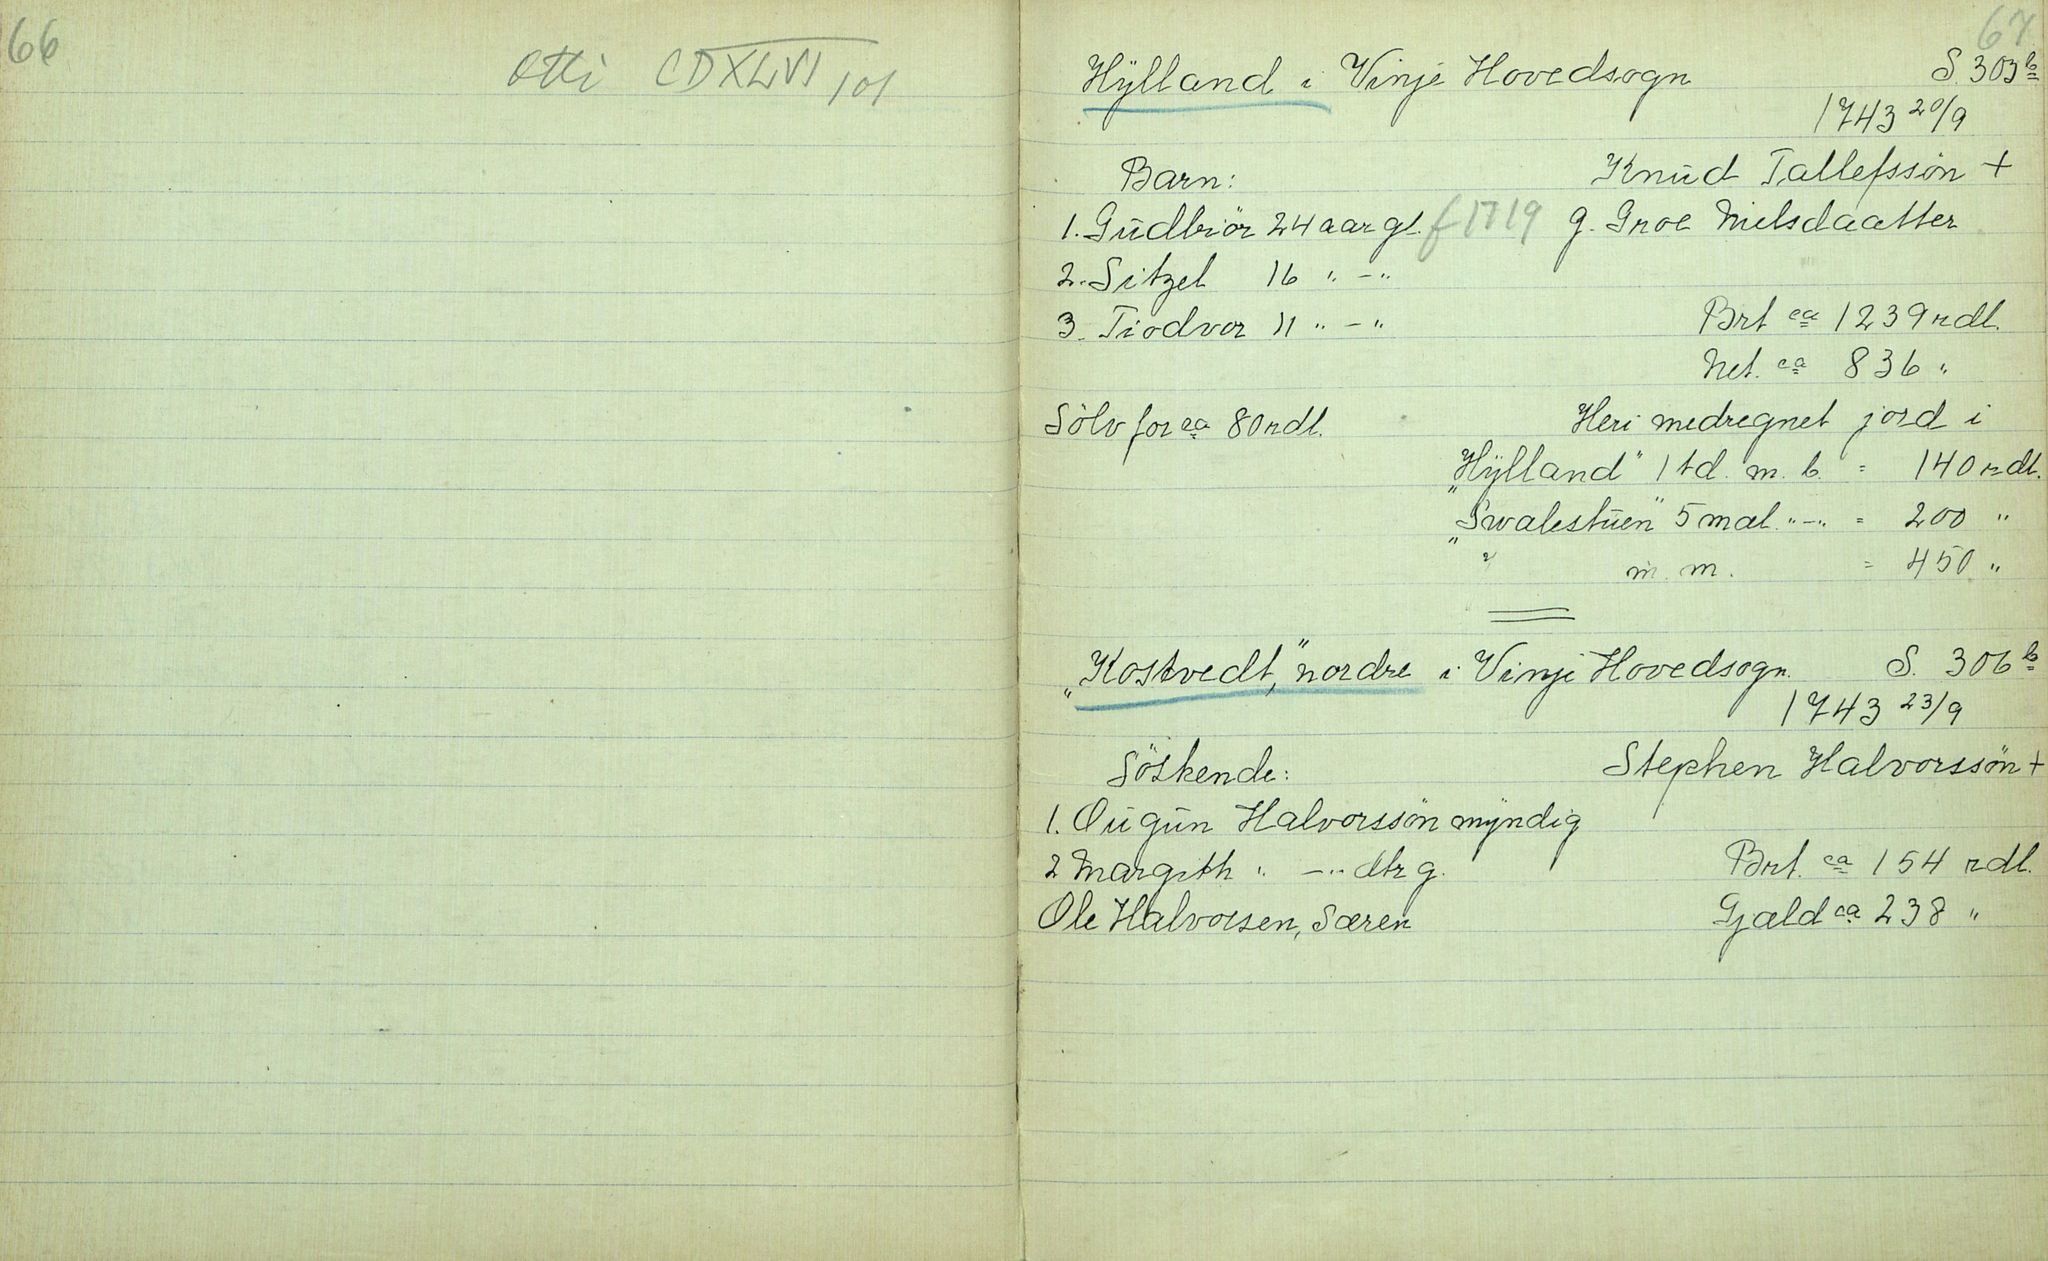 66
Otti CDXLVI 101
67
Hÿlland i Vinje Hovedsogn S. 303 b
1743 20/9
Barn: Knud Tallefssön +
1. Gudbiör 24 aar gl. f 1719 g. Groe Nielsdaatter
2. Sitzel 16 " - "
3. Tiodvor 11 " - " Brt ca 1239 rdl.
Net. ca 836 "
Sölv for ca 80 rdl. Heri medregnet jord i
"Hÿlland" 1 td. m. b. = 140 rdl.
"Svalestuen" 5 mæl. " - " = 200 "
" m. m. = 450 "
"Kostvedt," nordre i Vinje Hovedsogn. S. 306 b
1743 23/9
Söskende: Stephen Halvorssön +
1. Ougun Halvorssön mÿndig
2 Margith " - " dtr g. Brt. ca 154 rdl.
Ole Halvorsen, Særen Gjæld ca 238 "